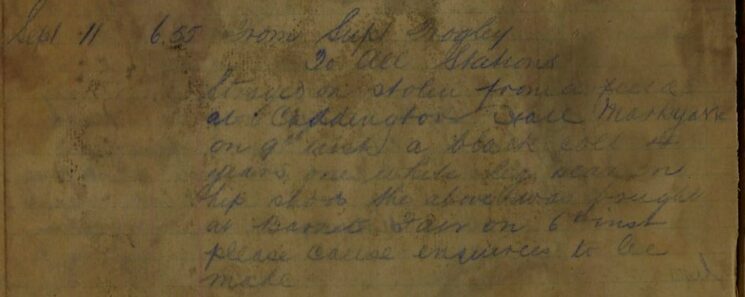 Sept 11 6.55 From Supt Frogley
To All Stations
Strayed or stolen from a field
at Caddington Hall Markyate
on 9th inst a black colt 4
years one white leg near
hip shod the above was bought
at Barnet Fair on 6th inst
please cause enquiries to be
made